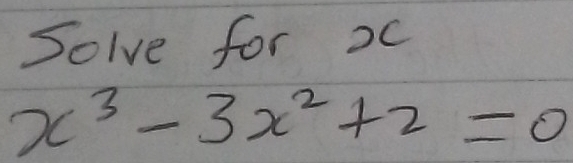 Solve for x
x³ - 3x² + 2 = 0